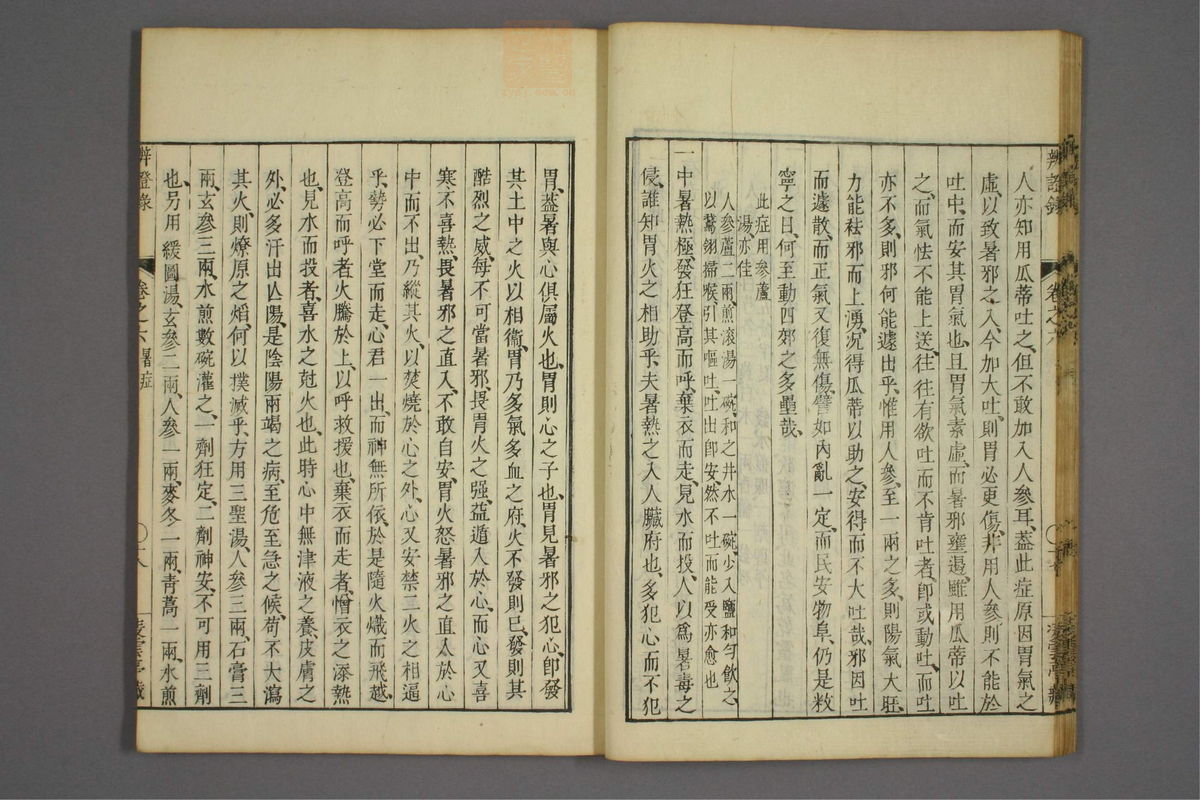 人亦知用瓜蒂吐之、但不敢加入人參耳、葢此症原因胃氣之
虛、以致暑邪之入、今加大吐、則胃必更傷、非用人參則不能於
吐中、而安其胃氣也、且胃氣素虛、而暑邪壅遏、雖用瓜蒂以吐
之、而氣怯不能上送、往往有欲吐而不肯吐者、卽或動吐、而吐
亦不多、則邪何能遽出乎、惟用人參、至一兩之多、則陽氣大旺、
力能祛邪而上湧、況得瓜蒂以助之、安得而不大吐哉、邪因吐
而遽散、而正氣又復無傷、譬如內亂一定、而民安物阜、仍是敉
寧之日、何至動四郊之多壘哉、
此症用參蘆
湯亦佳
人參蘆二兩、煎滾湯一碗、和之井水一碗、少入鹽和勻飲之、
以鵞翎掃喉、引其嘔吐、吐出卽安、然不吐而能受亦愈也
一中暑熱極、發狂登高而呼、棄衣而走、見水而投、人以爲暑毒之
侵、誰知胃火之相助乎、夫暑熱之入人臟府也、多犯心而不犯
胃、葢暑與心俱屬火也、胃則心之子也、胃見暑邪之犯心、卽發
其土中之火以相衞、胃乃多氣多血之府、火不發則已、發則其
酷烈之威、每不可當、暑邪、畏胃火之强、益遁入於心、而心又喜
寒不喜熱、畏暑邪之直入、不敢自安、胃火怒暑邪之直太於心
中而不出、乃縱其火、以焚燒於心之外、心又安禁二火之相逼
乎、勢必下堂而走、心君一出、而神無所依、於是隨火熾而飛越、
登高而呼者、火騰於上、以呼救援也、棄衣而走者、憎衣之添熱
也、見水而投者、喜水之尅火也、此時心中無津液之養、皮膚之
外、必多汗出亾陽、是陰陽兩竭之病、至危至急之候、苟不大瀉
其火、則燎原之焰、何以撲滅乎、方用三聖湯、人參三兩、石膏三
兩、玄參三兩、水煎數碗灌之、一劑狂定、二劑神安、不可用三劑
也、另用 緩圖湯、玄參二兩、人參一兩、麥冬一兩、青蒿一兩、水煎
辨證錄
卷之六 暑症